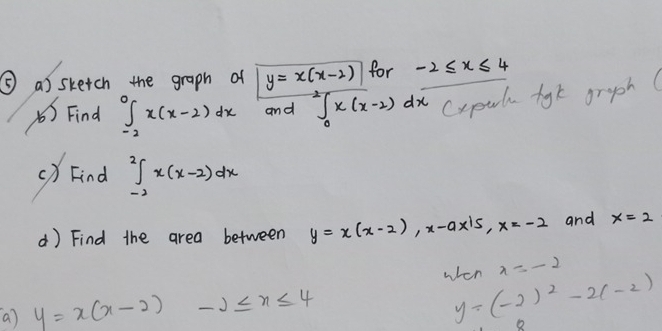 ⑤ a) Sketch the graph of y = x(x-2) for -2 ≤ x ≤ 4
b) Find ∫_{-2}^{0} x(x-2) dx and ∫_{0}^{2} x(x-2) dx tgk graph (
c) Find ∫_{-2}^{2} x(x-2) dx
d) Find the area between y = x(x-2), x-axis, x = -2 and x = 2
when x = -2
a) y = x(x-2) -2 ≤ x ≤ 4
y = (-2)² - 2(-2)
8